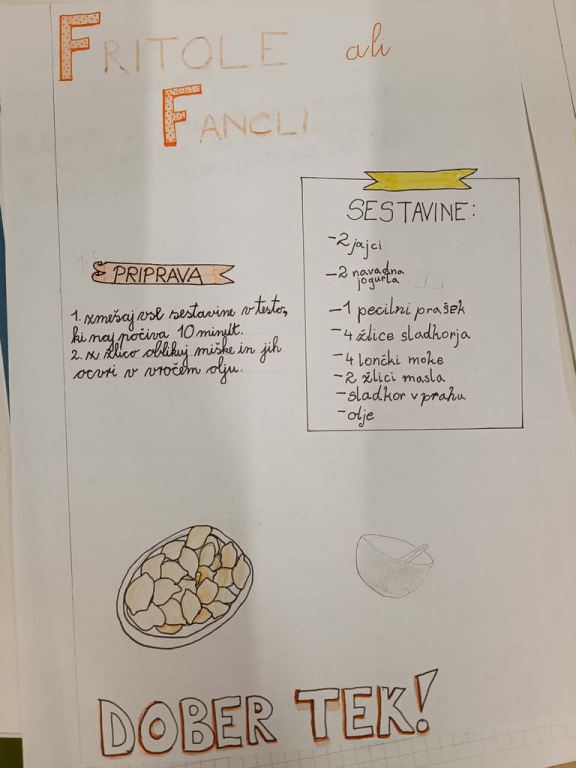 FRITOLE ali
FANCLI
SESTAVINE:
-2 jajci
-2 navadna
jogurta
-1 pecilni prašek
-4 žlice sladkorja
-4 lončki moke
-2 žlici masla
-sladkor v prahu
-olje
PRIPRAVA
1. zmešaj vse sestavine v testo,
ki naj počiva 10 minut.
2. z žlico oblikuj miške in jih
ocvri v vročem olju.
DOBER TEK!